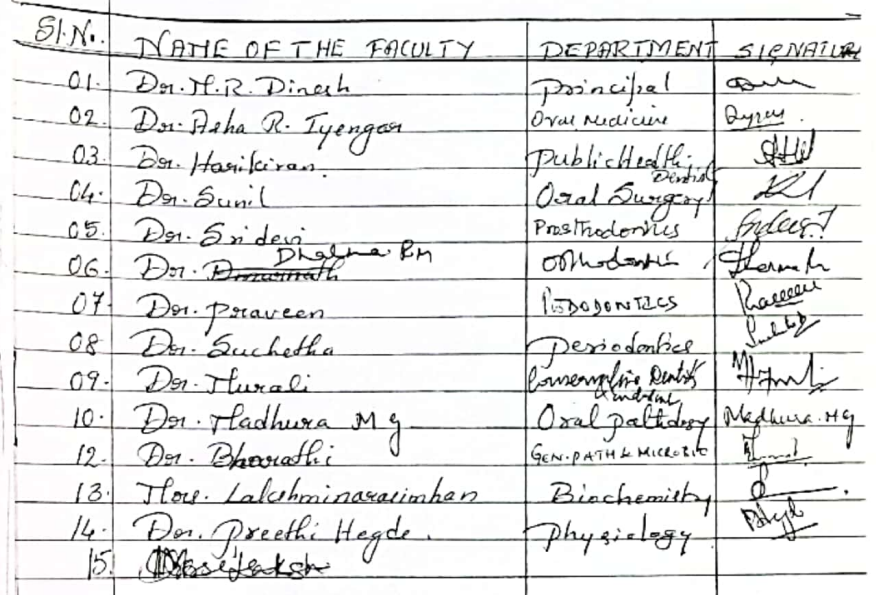 Sl.No. NAME OF THE FACULTY DEPARTMENT SIGNATURE
01. Dr. H.R. Dinesh Principal
02. Dr. Asha R. Iyengar Oral Medicine
03. Dr. Harikiran. Public Health Dentist
04. Dr. Sunil Oral Surgery
05. Dr. Sridevi Prosthodontics
06. Dr. Orthodontic
07. Dr. Praveen PEDODONTICS
08 Dr. Suchetha Periodontics
09. Dr. Murali Conservative Dentist
10. Dr. Madhura M g Oral pathology Madhura. Mg
12. Dr. Bharathi GEN. PATH & MICROBIO
13. Mrs. Lakshminarasimhan Biochemistry
14. Dr. Preethi Hegde. Physiology
15.